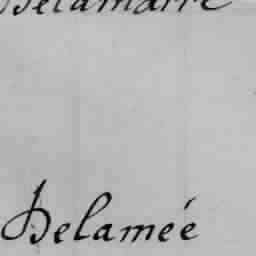 Delamarre
Delamée